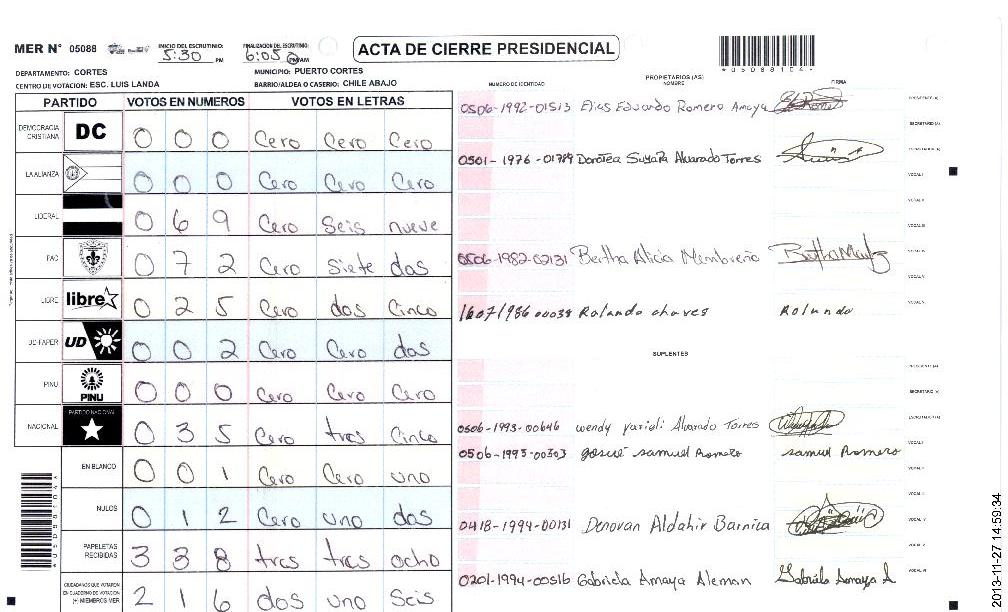 MER N° 05088 INICIO DEL ESCRUTINIO: 5:30 PM FINALIZACION DEL ESCRUTINIO: 6:05 PM/AM ACTA DE CIERRE PRESIDENCIAL
*05088104*
DEPARTAMENTO: CORTES MUNICIPIO: PUERTO CORTES
CENTRO DE VOTACION: ESC. LUIS LANDA BARRIO/ALDEA O CASERIO: CHILE ABAJO
PARTIDO VOTOS EN NUMEROS VOTOS EN LETRAS
DEMOCRACIA CRISTIANA DC 0 0 0 Cero Cero Cero
LA ALIANZA 0 0 0 Cero Cero Cero
LIBERAL 0 6 9 Cero Seis nueve
PAC 0 7 2 Cero Siete dos
LIBRE libre 0 2 5 Cero dos Cinco
UD-FAPER UD 0 0 2 Cero Cero dos
PINU PINU 0 0 0 Cero Cero Cero
NACIONAL PARTIDO NACIONAL 0 3 5 Cero tres Cinco
EN BLANCO 0 0 1 Cero Cero uno
NULOS 0 1 2 Cero uno dos
PAPELETAS RECIBIDAS 3 3 8 tres tres ocho
CIUDADANOS QUE VOTARON EN CUADERNO DE VOTACION (+) MIEMBROS MER 2 1 6 dos uno Seis
PROPIETARIOS (AS)
NUMERO DE IDENTIDAD NOMBRE FIRMA
0506-1992-01513 Elias Eduardo Romero Amaya
0501-1976-01789 Dorotea Suyapa Alvarado Torres
0506-1982-02131 Bertha Alicia Membreño
16071986 00039 Rolando chaves Rolando
SUPLENTES
0506-1993-00646 wendy yarieli Alvarado Torres
0506-1995-00303 josué samuel Romero samuel Romero
0418-1994-00131 Denovan Aldahir Barnica
0201-1994-00516 Gabriela Amaya Aleman Gabriela Amaya A
2013-11-27 14:59:34